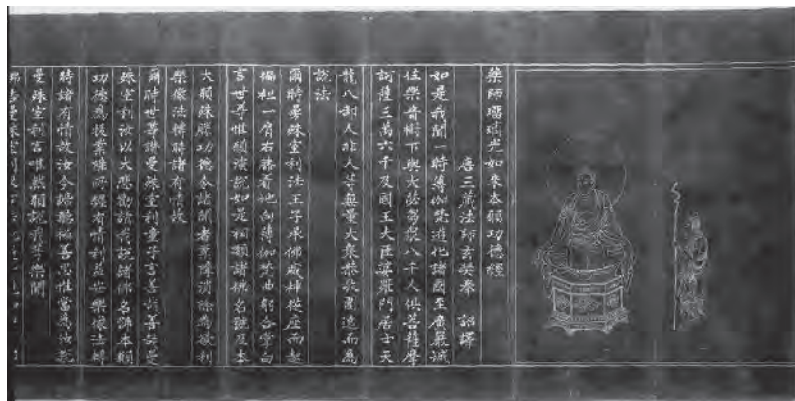 藥師瑠璃光如來本願功德經
唐三藏法師玄奘奉 詔譯
如是我聞一時薄伽梵遊化諸國至廣嚴城
住樂音樹下與大苾芻衆八千人俱菩薩摩
訶薩三萬六千及國王大臣婆羅門居士天
龍八部人非人等無量大衆恭敬圍遶而為
說法
爾時曼殊室利法王子承佛威神從座而起
偏袒一肩右膝著地向薄伽梵曲躬合掌白
言世尊惟願演說如是相類諸佛名號及本
大願殊勝功德令諸聞者業障消除為欲利
樂像法轉時諸有情故
爾時世尊讚曼殊室利童子言善哉善哉曼
殊室利汝以大悲勸請我說諸佛名號本願
功德為拔業障所纏有情利益安樂像法轉
時諸有情故汝今諦聽極善思惟當為汝說
曼殊室利言唯然願說我等樂聞
佛告曼殊室利